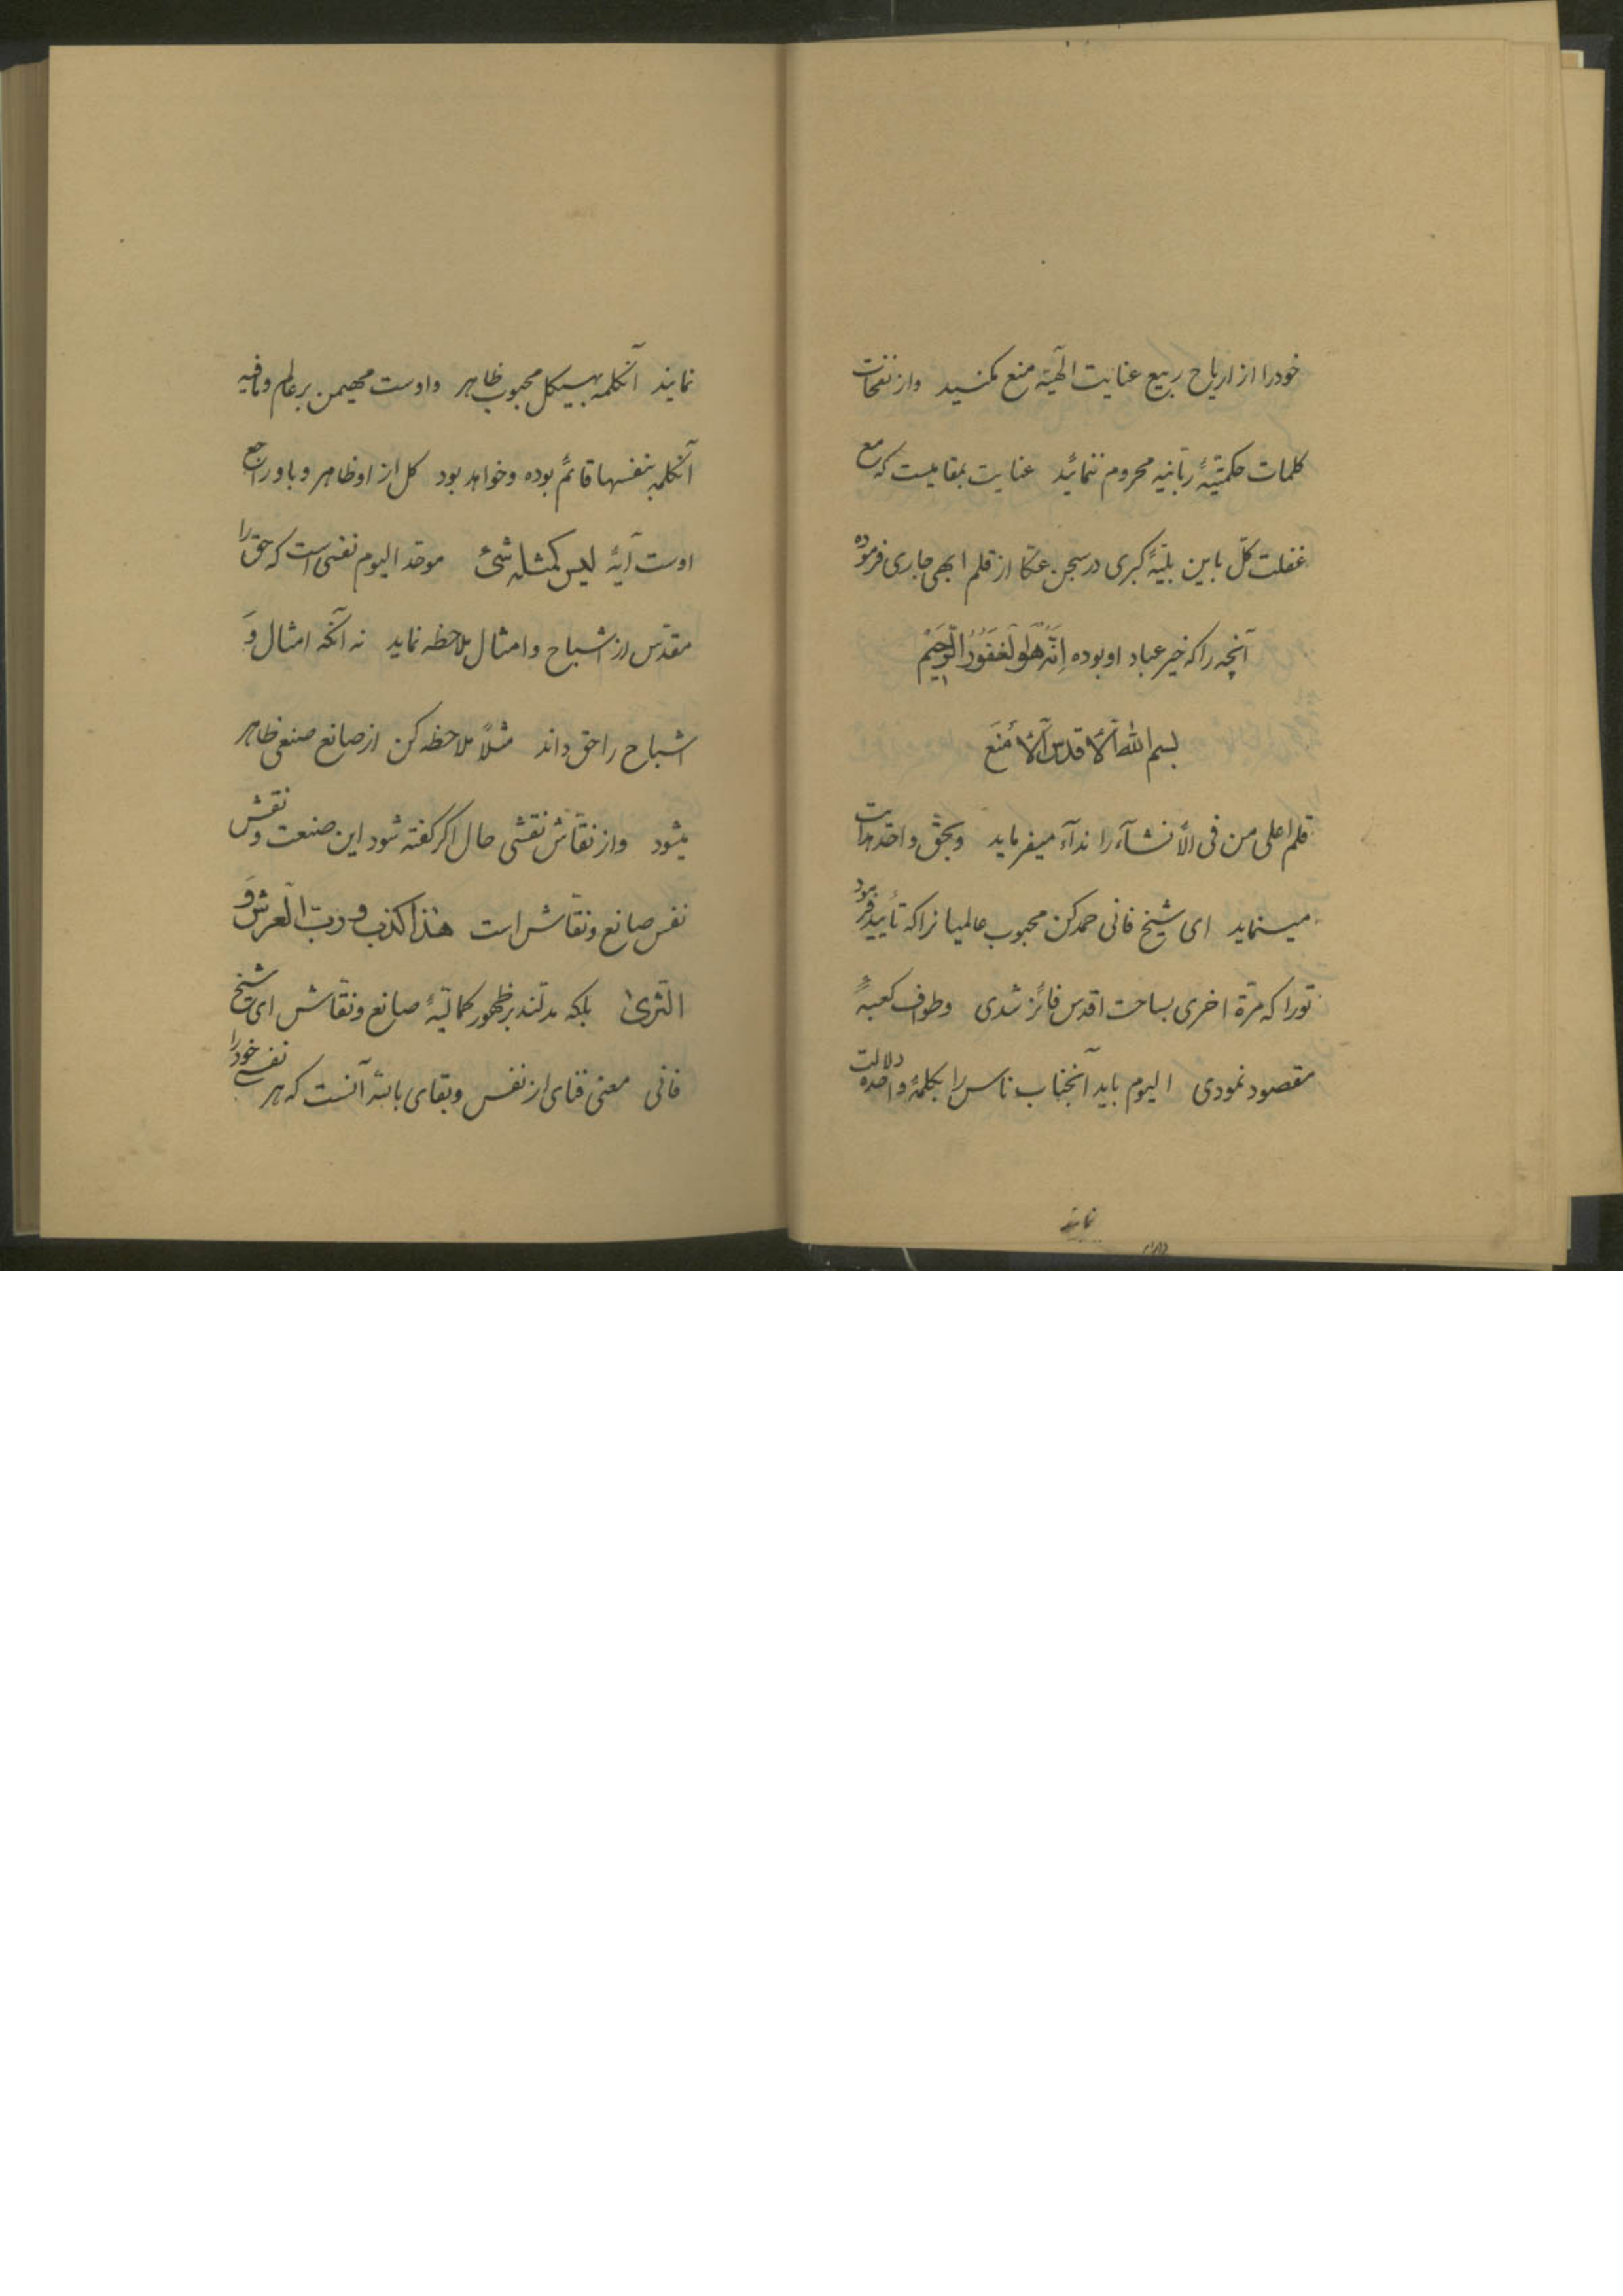 خود را از اریاح ربیع عنایت الهیّه منع مکنید واز نفحات
کلمات حکمتیّهٔ ربّانیه محروم ننمائید عنایت بمقامیست که مع
غفلت کلّ با این بلیّهٔ کبری در سجن عکّا از قلم ابهی جاری فرموده
آنچه را که خیر عباد او بوده اِنَّهُ لَهُوَ الغَفُورُ الرَّحِیْم
بسم الله آلأقدس آلأمنَع
قلم اعلی من فی الأنشآء را ندآء میفرماید وبحقّ واحد هدایت
مینماید ای شیخ فانی حمد کن محبوب عالمیانرا که تأیید فرمود
تو را که مرّة اخری بساحت اقدس فائز شدی وطواف کعبهٔ
مقصود نمودی الیوم باید آنجناب ناس را بکلمهٔ واحده دلالت
نمایند
نمایند آنکلمه بهیکل محبوب ظاهر واوست مهیمن بر عالم ومافیه
آنکلمه بنفسها قائم بوده وخواهد بود کل از او ظاهر وباو راجع
اوست آیهٔ لیس کمثله شئ موحّد الیوم نفسی است که حق را
مقدّس از اشباح وامثال ملاحظه نماید نه آنکه امثال وَ
اشباح را حق داند مثلاً ملاحظه کن از صانع صنعی ظاهر
میشود واز نقّاش نقشی حال اکر کفته شود این صنعت ونقش
نفس صانع ونقّاش است هذا کذب وربّ العرش وَ
الثّری بلکه مدلّند بر ظهور کمالیّهٔ صانع ونقّاش ای شیخ
فانی معنی فنای از نفس وبقای بالله آنست که هر نفسی خود را